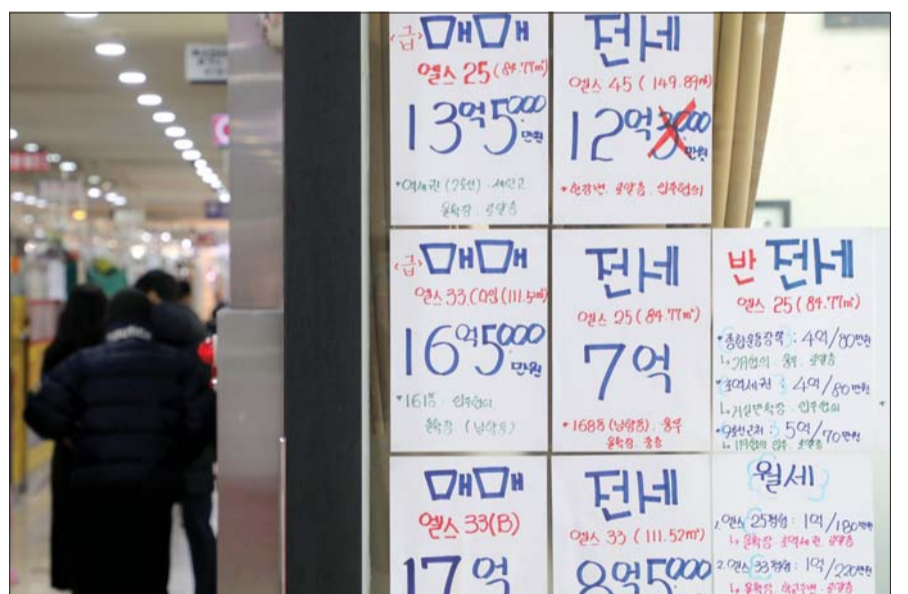 <급>매매
엘스 25 (84.77㎡)
13억 5000만원
*역세권(2호선)·새만고
올확장·로얄층
전세
엘스 45 (149.89㎡)
12억 3000만원
*한강변·로얄층·입주협의
<급>매매
엘스 33.(111.5㎡)
16억 5000만원
*161동·입주협의
올확장·(남향동)
전세
엘스 25 (84.77㎡)
7억
*168동(남향동)·올부
올확장·중층
반전세
엘스 25 (84.77㎡)
*종합운동장쪽 : 4억/80만원
로얄층
역세권 : 4억/80만원
↳거실만확장·입주협의
*9호선근처 : 5억/70만원
로얄층
매매
엘스 33(B)
17억
전세
엘스 33 (111.52㎡)
8억 5000
월세
1.엘스 25평형 : 1억/180만원
↳올확장·초역세권·로얄층
2.엘스 33평형 : 1억/220만원
↳올확장·학교주변·로얄층